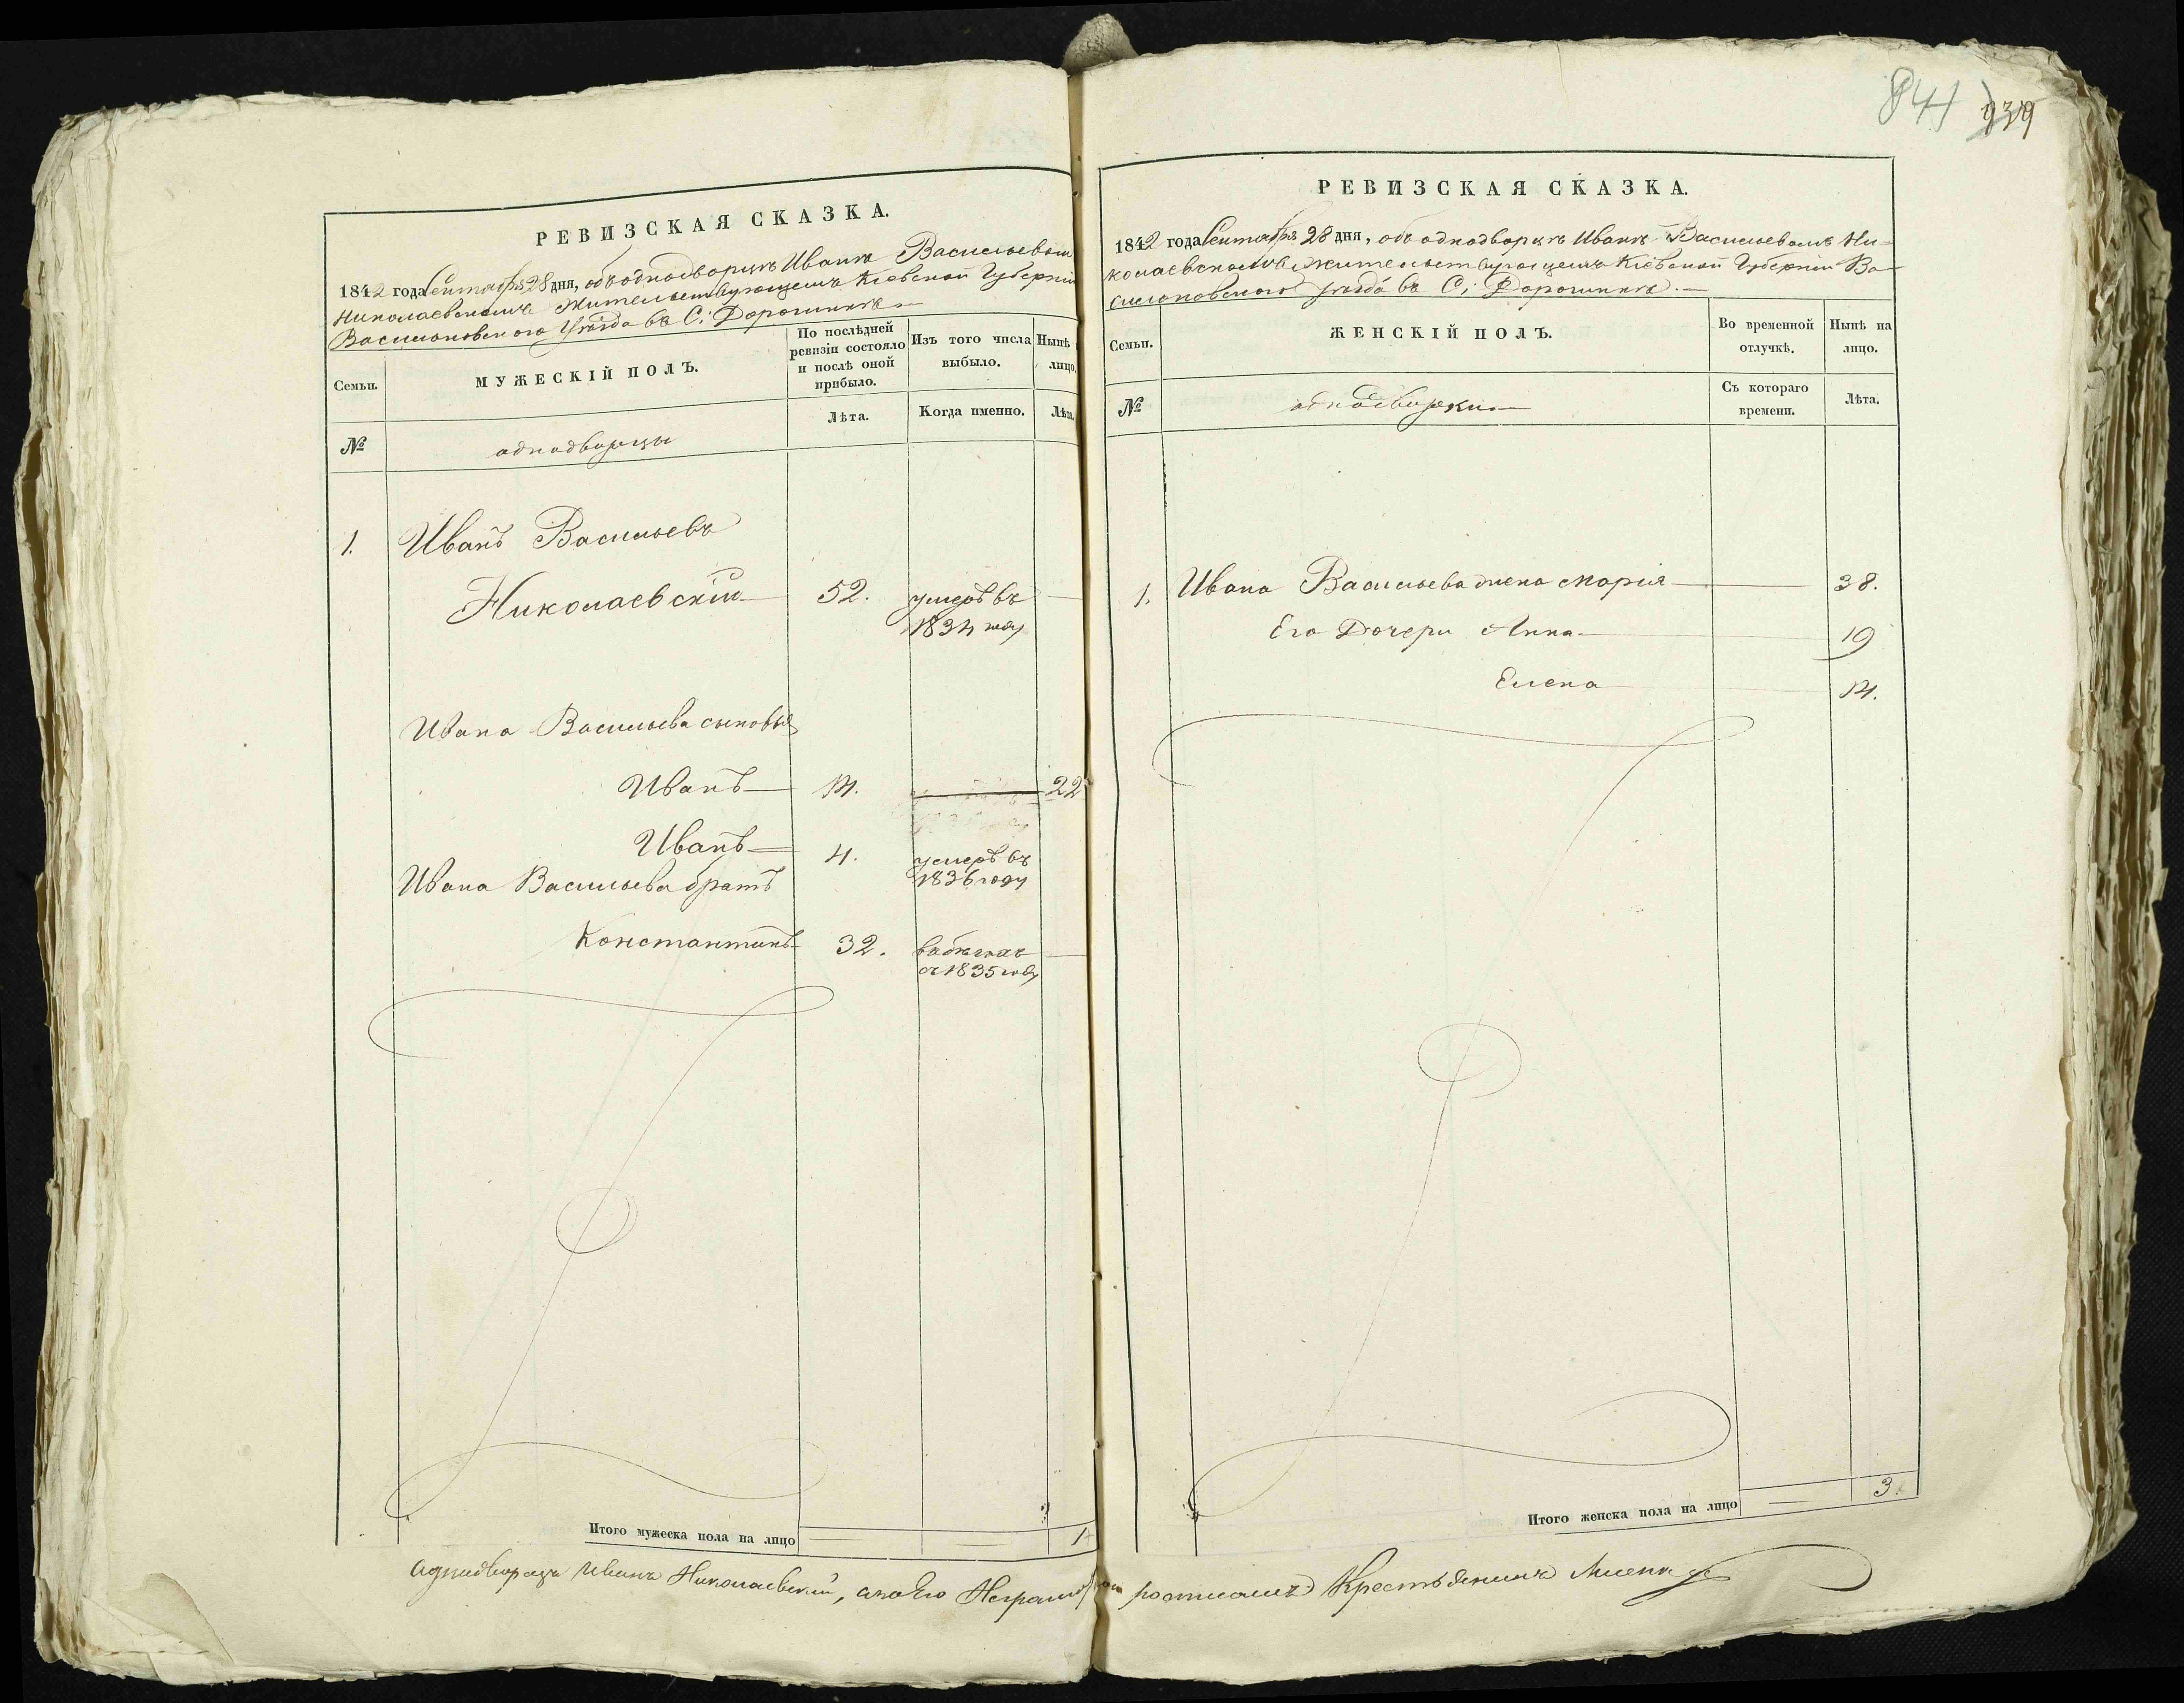 РЕВИЗСКАЯ СКАЗКА.
1842 года Сентября 28 дня, объ однодворцѣ Иванѣ Васильевом
Николаевскомъ жительствующемъ Кіевской Губерніи
Васильковского Уѣзда въ С: Дорогинкѣ
Семьи.
МУЖЕСКІЙ ПОЛЪ.
По послѣдней ревизіи состояло и послѣ оной прибыло.
Изъ того числа выбыло.
Нынѣ лицо.
№
однодворцы
Лѣта.
Когда именно.
Лѣта.
1. Иванъ Васильевъ
Николаевскій 52. умеръ въ
1834 году
Ивана Васильева сыновья
Иванъ 14. 22
Иванъ 4. умеръ въ
1836 году
Ивана Васильева братъ
Константинъ 32. въ бѣгахъ
съ 1835 году
Итого мужеска пола на лицо 1
841 939
РЕВИЗСКАЯ СКАЗКА.
1842 года Сентября 28 дня, объ однодворцѣ Иванѣ Васильевомъ Ни-
колаевскомъ жительствующемъ Кіевской Губерніи Ва-
сильковского Уѣзда въ С; Дорогинкѣ.
Семьи.
ЖЕНСКІЙ ПОЛЪ.
Во временной отлучкѣ.
Нынѣ на лицо.
№
однодворки
Съ котораго времени.
Лѣта.
1. Ивана Васильева жена Марія 38.
Его Дочери Анна 19
Елена 14.
Итого женска пола на лицо 3.
Аднидворецъ Иванъ Николаевский, а по Его росписалъ Крестьянинъ